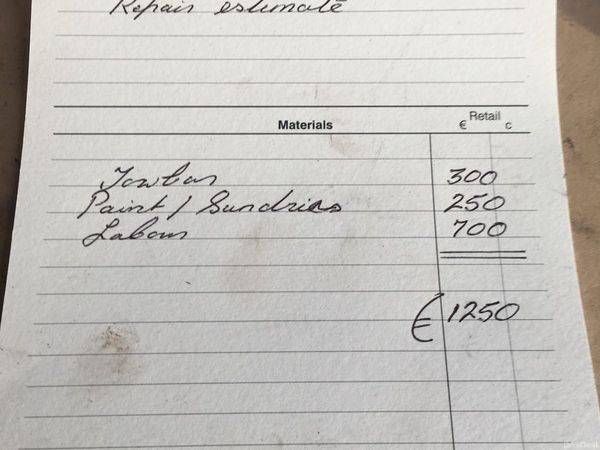 Repair estimate
Retail
Materials € c
Towbar 300
Paint / Sundries 250
Labour 700
€ 1250